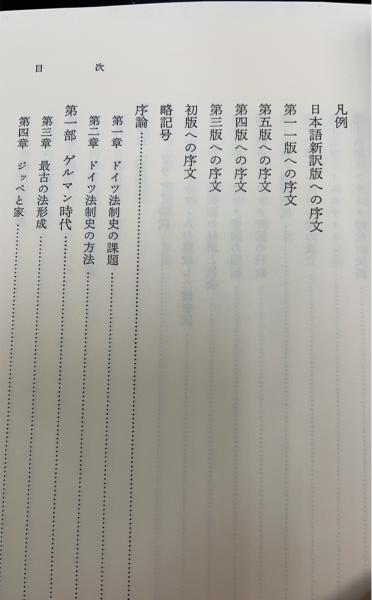 目次
凡例
日本語新訳版への序文
第一一版への序文
第五版への序文
第四版への序文
第三版への序文
初版への序文
略記号
序論
第一章 ドイツ法制史の課題
第二章 ドイツ法制史の方法
第一部 ゲルマン時代
第三章 最古の法形成
第四章 ジッペと家